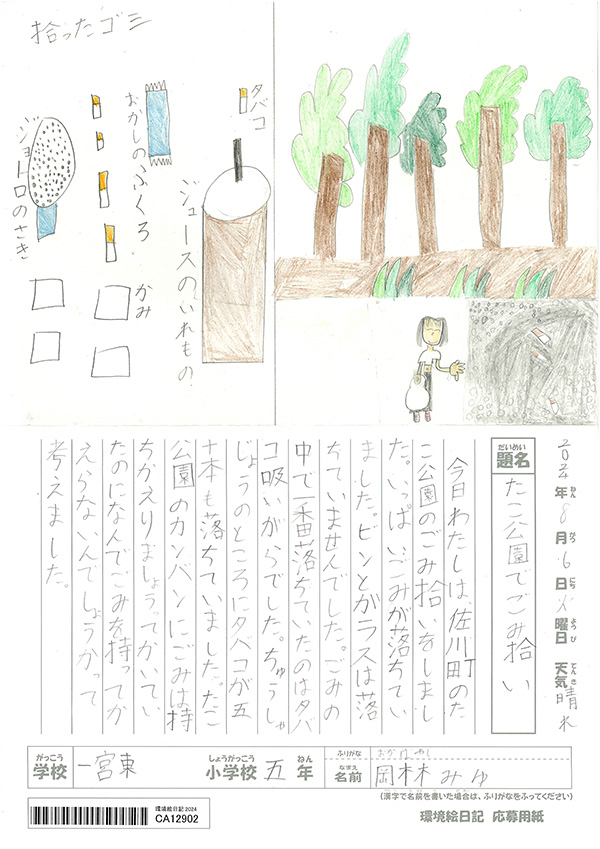 拾ったゴミ
タバコ
おかしのふくろ
ジョーロのさき
ジュースのいれもの
かみ
2024年8月6日火曜日 天気晴れ
ねん がつ にち ようび てんき
だいめい
題名
たこ公園でごみ拾い
今日わたしは、佐川町のた
こ公園のごみ拾いをしまし
た。いっぱいごみが落ちてい
ました。ビンとかガラスは落
ちていませんでした。ごみの
中で一番落ちていたのはタバ
コ吸いがらでした。ちゅうしゃ
じょうのところにタバコが五
十本も落ちていました。たこ
公園のカンバンにごみは持
ちかえりましょうってかいてい
たのになんでごみを持ってか
えらないんでしょうかって
考えました。
がっこう しょうがっこう ねん
学校 一宮東 小学校 五年
ふりがな おかばやし
なまえ
名前 岡林みゆ
(漢字で名前を書いた場合は、ふりがなをふってください)
環境絵日記2024
CA12902
環境絵日記 応募用紙